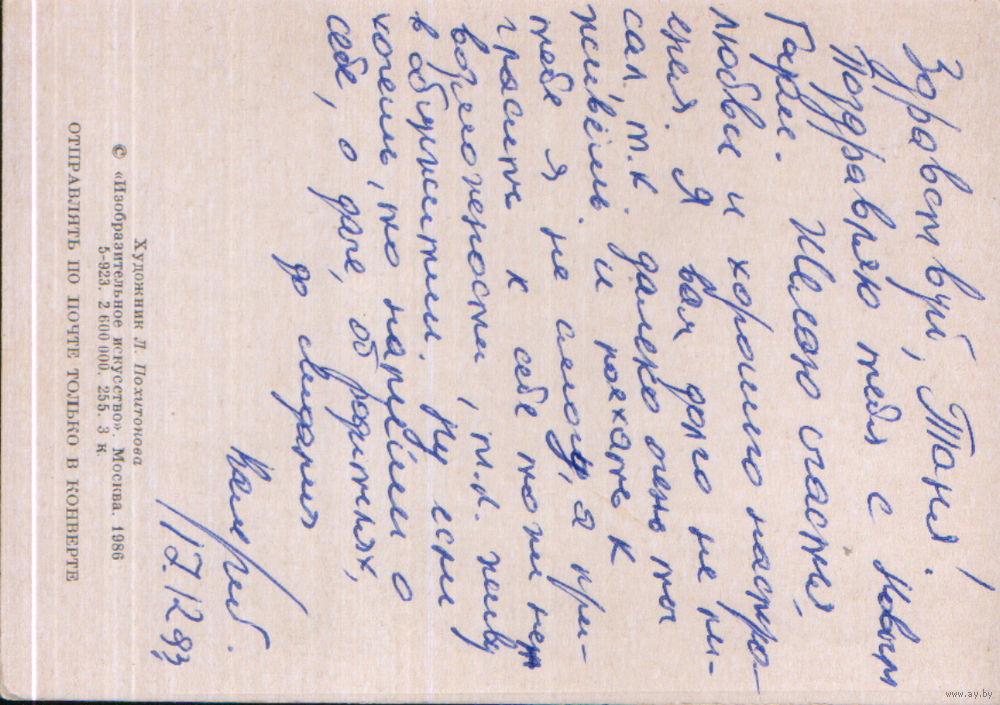 Здравствуй, Таня!
Поздравляю тебя с Новым
Годом. Желаю счастья,
любви и хорошего настро-
ения. Я вам долго не пи-
сал, т.к. далеко очень ты
живёшь. и поехать к
тебе я не смогу, а при-
гласить к себе тоже нет
возможности, т.к. живу
в общежитии. Ну если
хочешь, то напиши о
себе, о даче, об родителях,
до свидания
Валерий.
17.12.93
Художник Л. Похитонова
© «Изобразительное искусство». Москва. 1986
5-923. 2 600 000. 255. 3 к
ОТПРАВЛЯТЬ ПО ПОЧТЕ ТОЛЬКО В КОНВЕРТЕ
www.ay.by